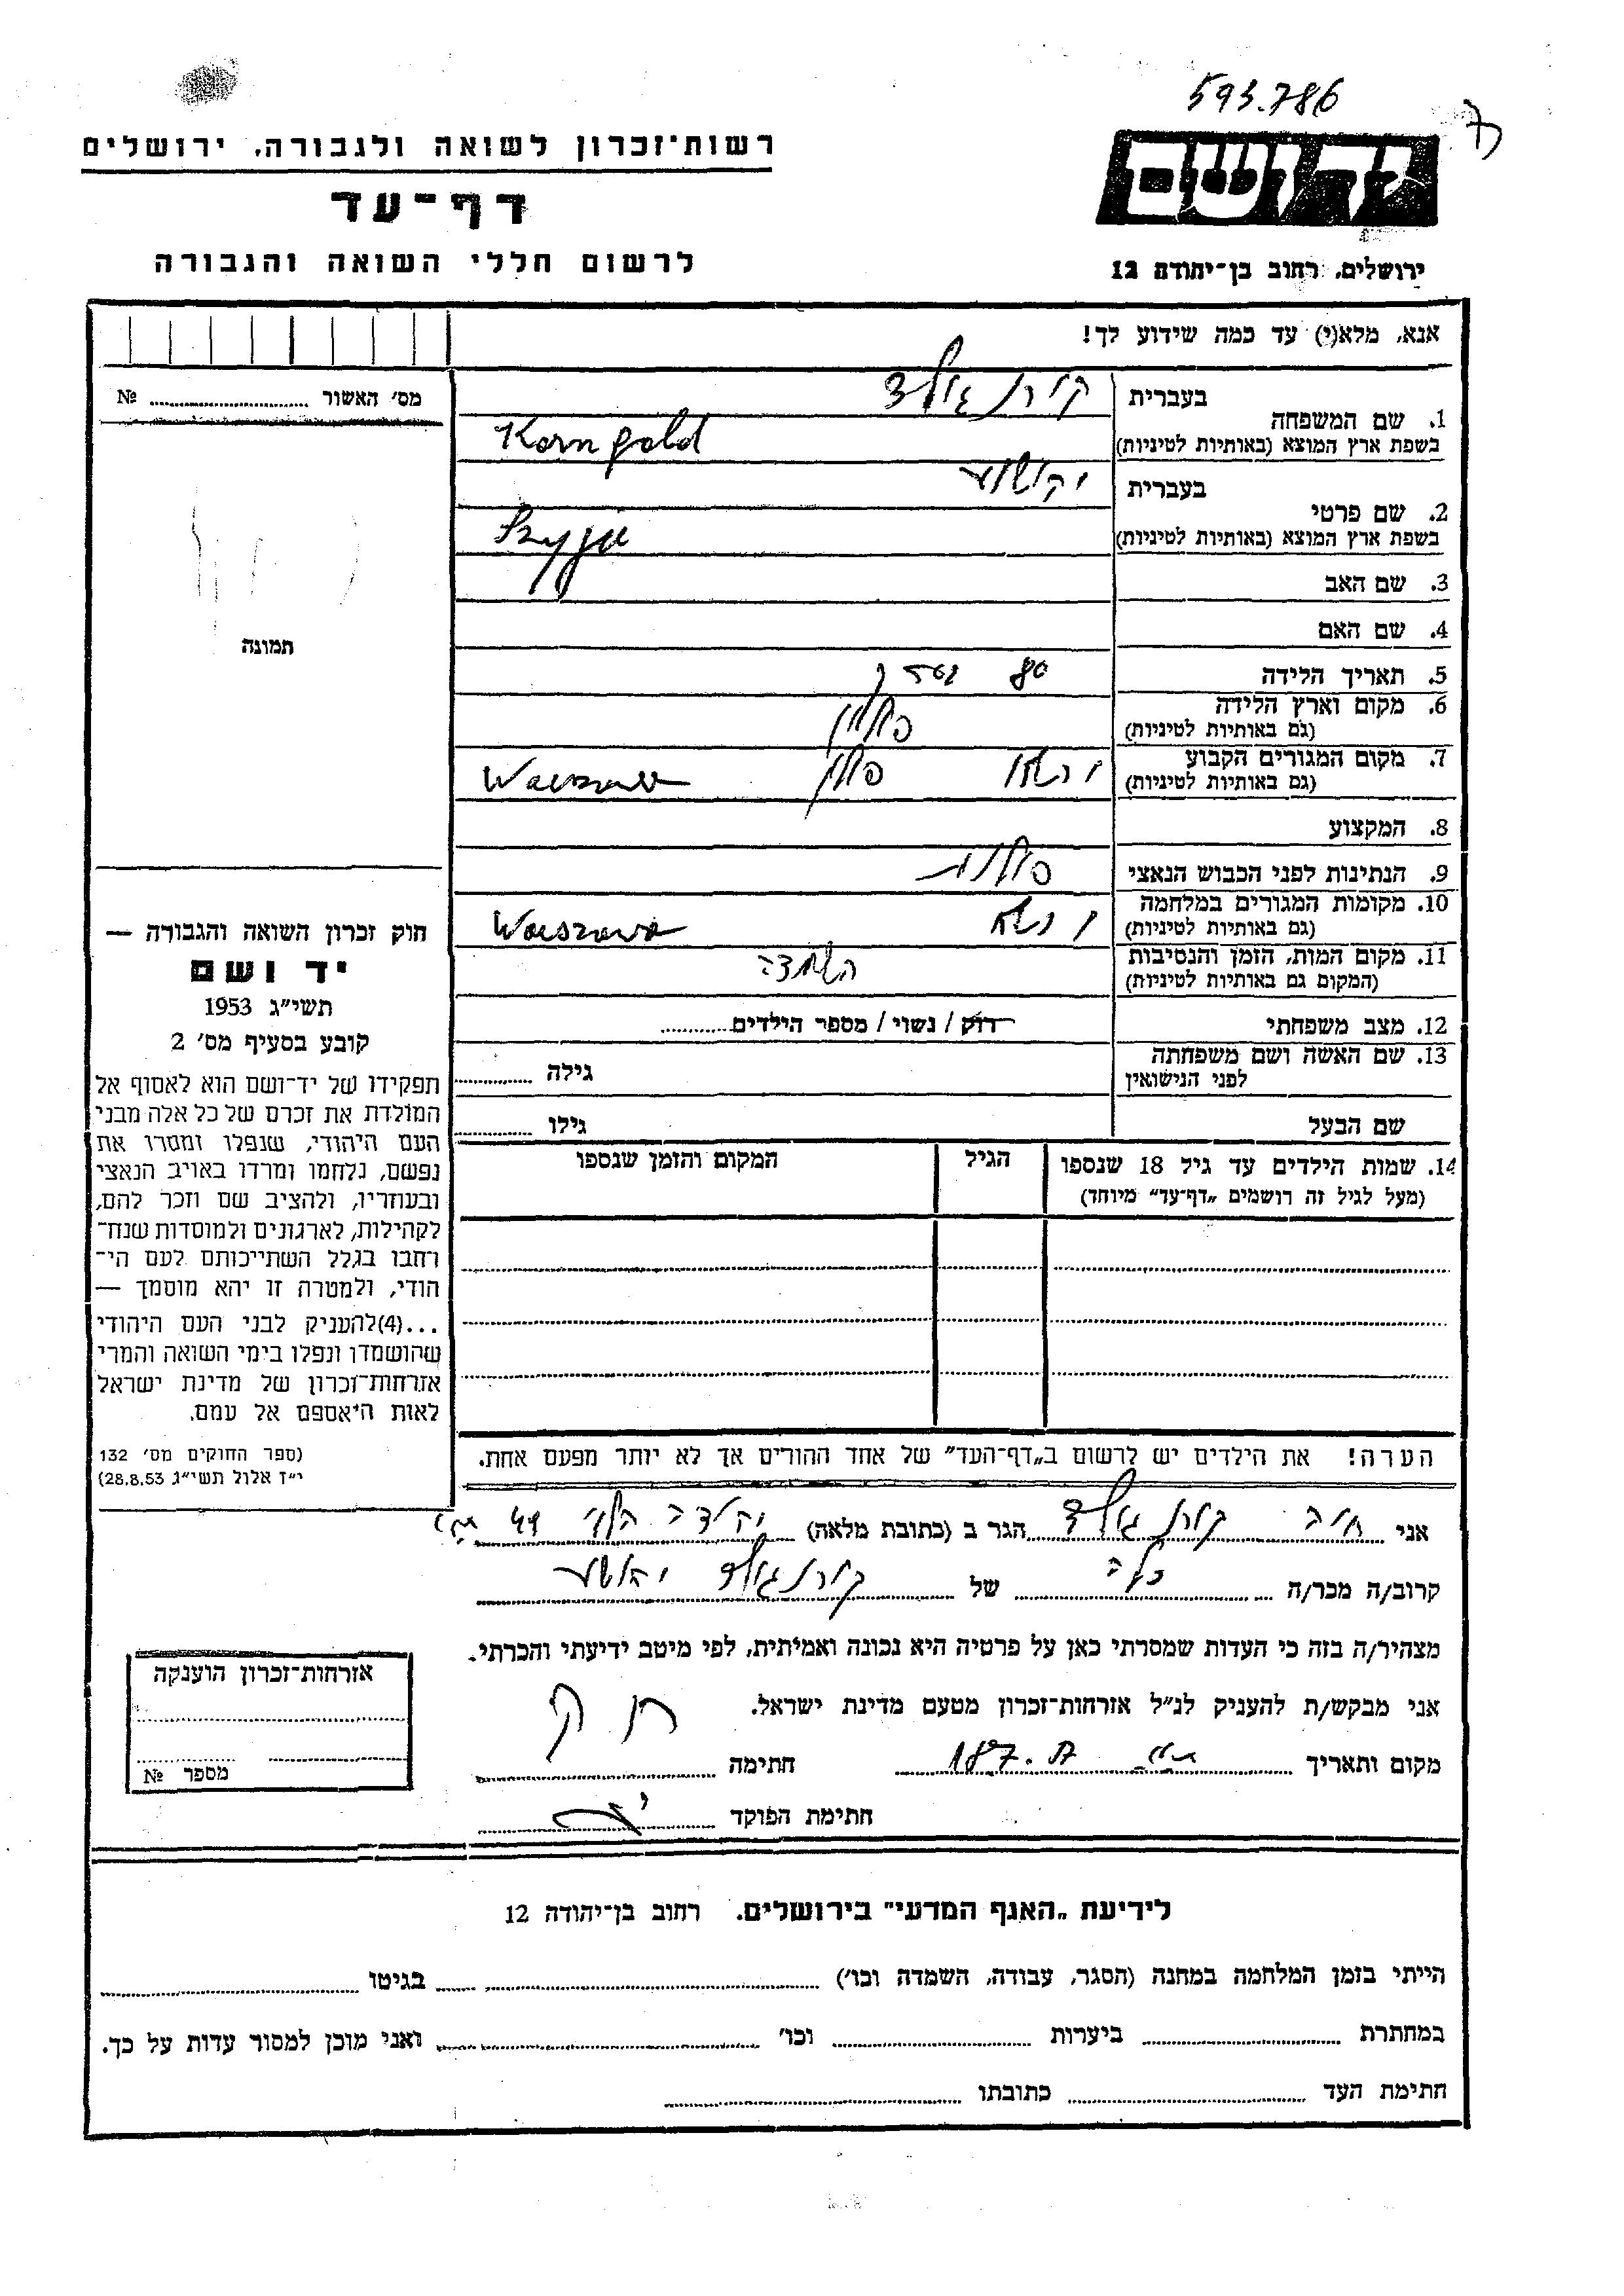 593.786
רשות־זכרון לשואה ולגבורה. ירושלים
דף־עד
לרשום חללי השואה והגבורה
יד ושם
ירושלים. רחוב בן־יהודה 12
אנא, מלא(י) עד כמה שידוע לך!
מס׳ האשור № 
תמונה
חוק זכרון השואה והגבורה —
יד ושם
תשי״ג 1953
קובע בסעיף מס׳ 2
תפקידו של יד־ושם הוא לאסוף אל
המולדת את זכרם של כל אלה מבני
העם היהודי, שנפלו ומסרו את
נפשם, נלחמו ומרדו באויב הנאצי
ובעוזריו, ולהציב שם וזכר להם,
לקהילות, לארגונים ולמוסדות שנח־
רחבו בגלל השתייכותם לעם הי־
הודי, ולמטרה זו יהא מוסמך —
...(4)להעניק לבני העם היהודי
שהושמדו ונפלו בימי השואה והמרי
אזרחות־זכרון של מדינת ישראל
לאות היאספם אל עמם.
(ספר החוקים מס׳ 132
י״ז אלול תשי״ג 28.8.53)
1. שם המשפחה בעברית קורנגולד
בשפת ארץ המוצא (באותיות לטיניות) Korngold
2. שם פרטי בעברית
בשפת ארץ המוצא (באותיות לטיניות)
3. שם האב
4. שם האם
5. תאריך הלידה
6. מקום וארץ הלידה פולין
(גם באותיות לטיניות)
7. מקום המגורים הקבוע ורשה פולין Warszawa
(גם באותיות לטיניות)
8. המקצוע
9. הנתינות לפני הכבוש הנאצי פולנית
10. מקומות המגורים במלחמה ורשה Warszawa
(גם באותיות לטיניות)
11. מקום המות, הזמן והנסיבות השמדה
(המקום גם באותיות לטיניות)
12. מצב משפחתי רווק / נשוי / מספר הילדים
13. שם האשה ושם משפחתה גילה
לפני הנישואין
שם הבעל גילו
14. שמות הילדים עד גיל 18 שנספו הגיל המקום והזמן שנספו
(מעל לגיל זה רושמים „דף־עד״ מיוחד)
הערה! את הילדים יש לרשום ב„דף־העד״ של אחד ההורים אך לא יותר מפעם אחת.
אני חיה קורנגולד הגר ב (כתובת מלאה) יהודה הלוי
קרוב/ה מכר/ה של קורנגולד
מצהיר/ה בזה כי העדות שמסרתי כאן על פרטיה היא נכונה ואמיתית, לפי מיטב ידיעתי והכרתי.
אני מבקש/ת להעניק לנ״ל אזרחות־זכרון מטעם מדינת ישראל.
מקום ותאריך חתימה
חתימת הפוקד
אזרחות־זכרון הוענקה
מספר №
לידיעת „האגף המדעי״ בירושלים. רחוב בן־יהודה 12
הייתי בזמן המלחמה במחנה (הסגר, עבודה, השמדה וכו׳) בגיטו
במחתרת ביערות וכו׳ ואני מוכן למסור עדות על כך.
חתימת העד כתובתו